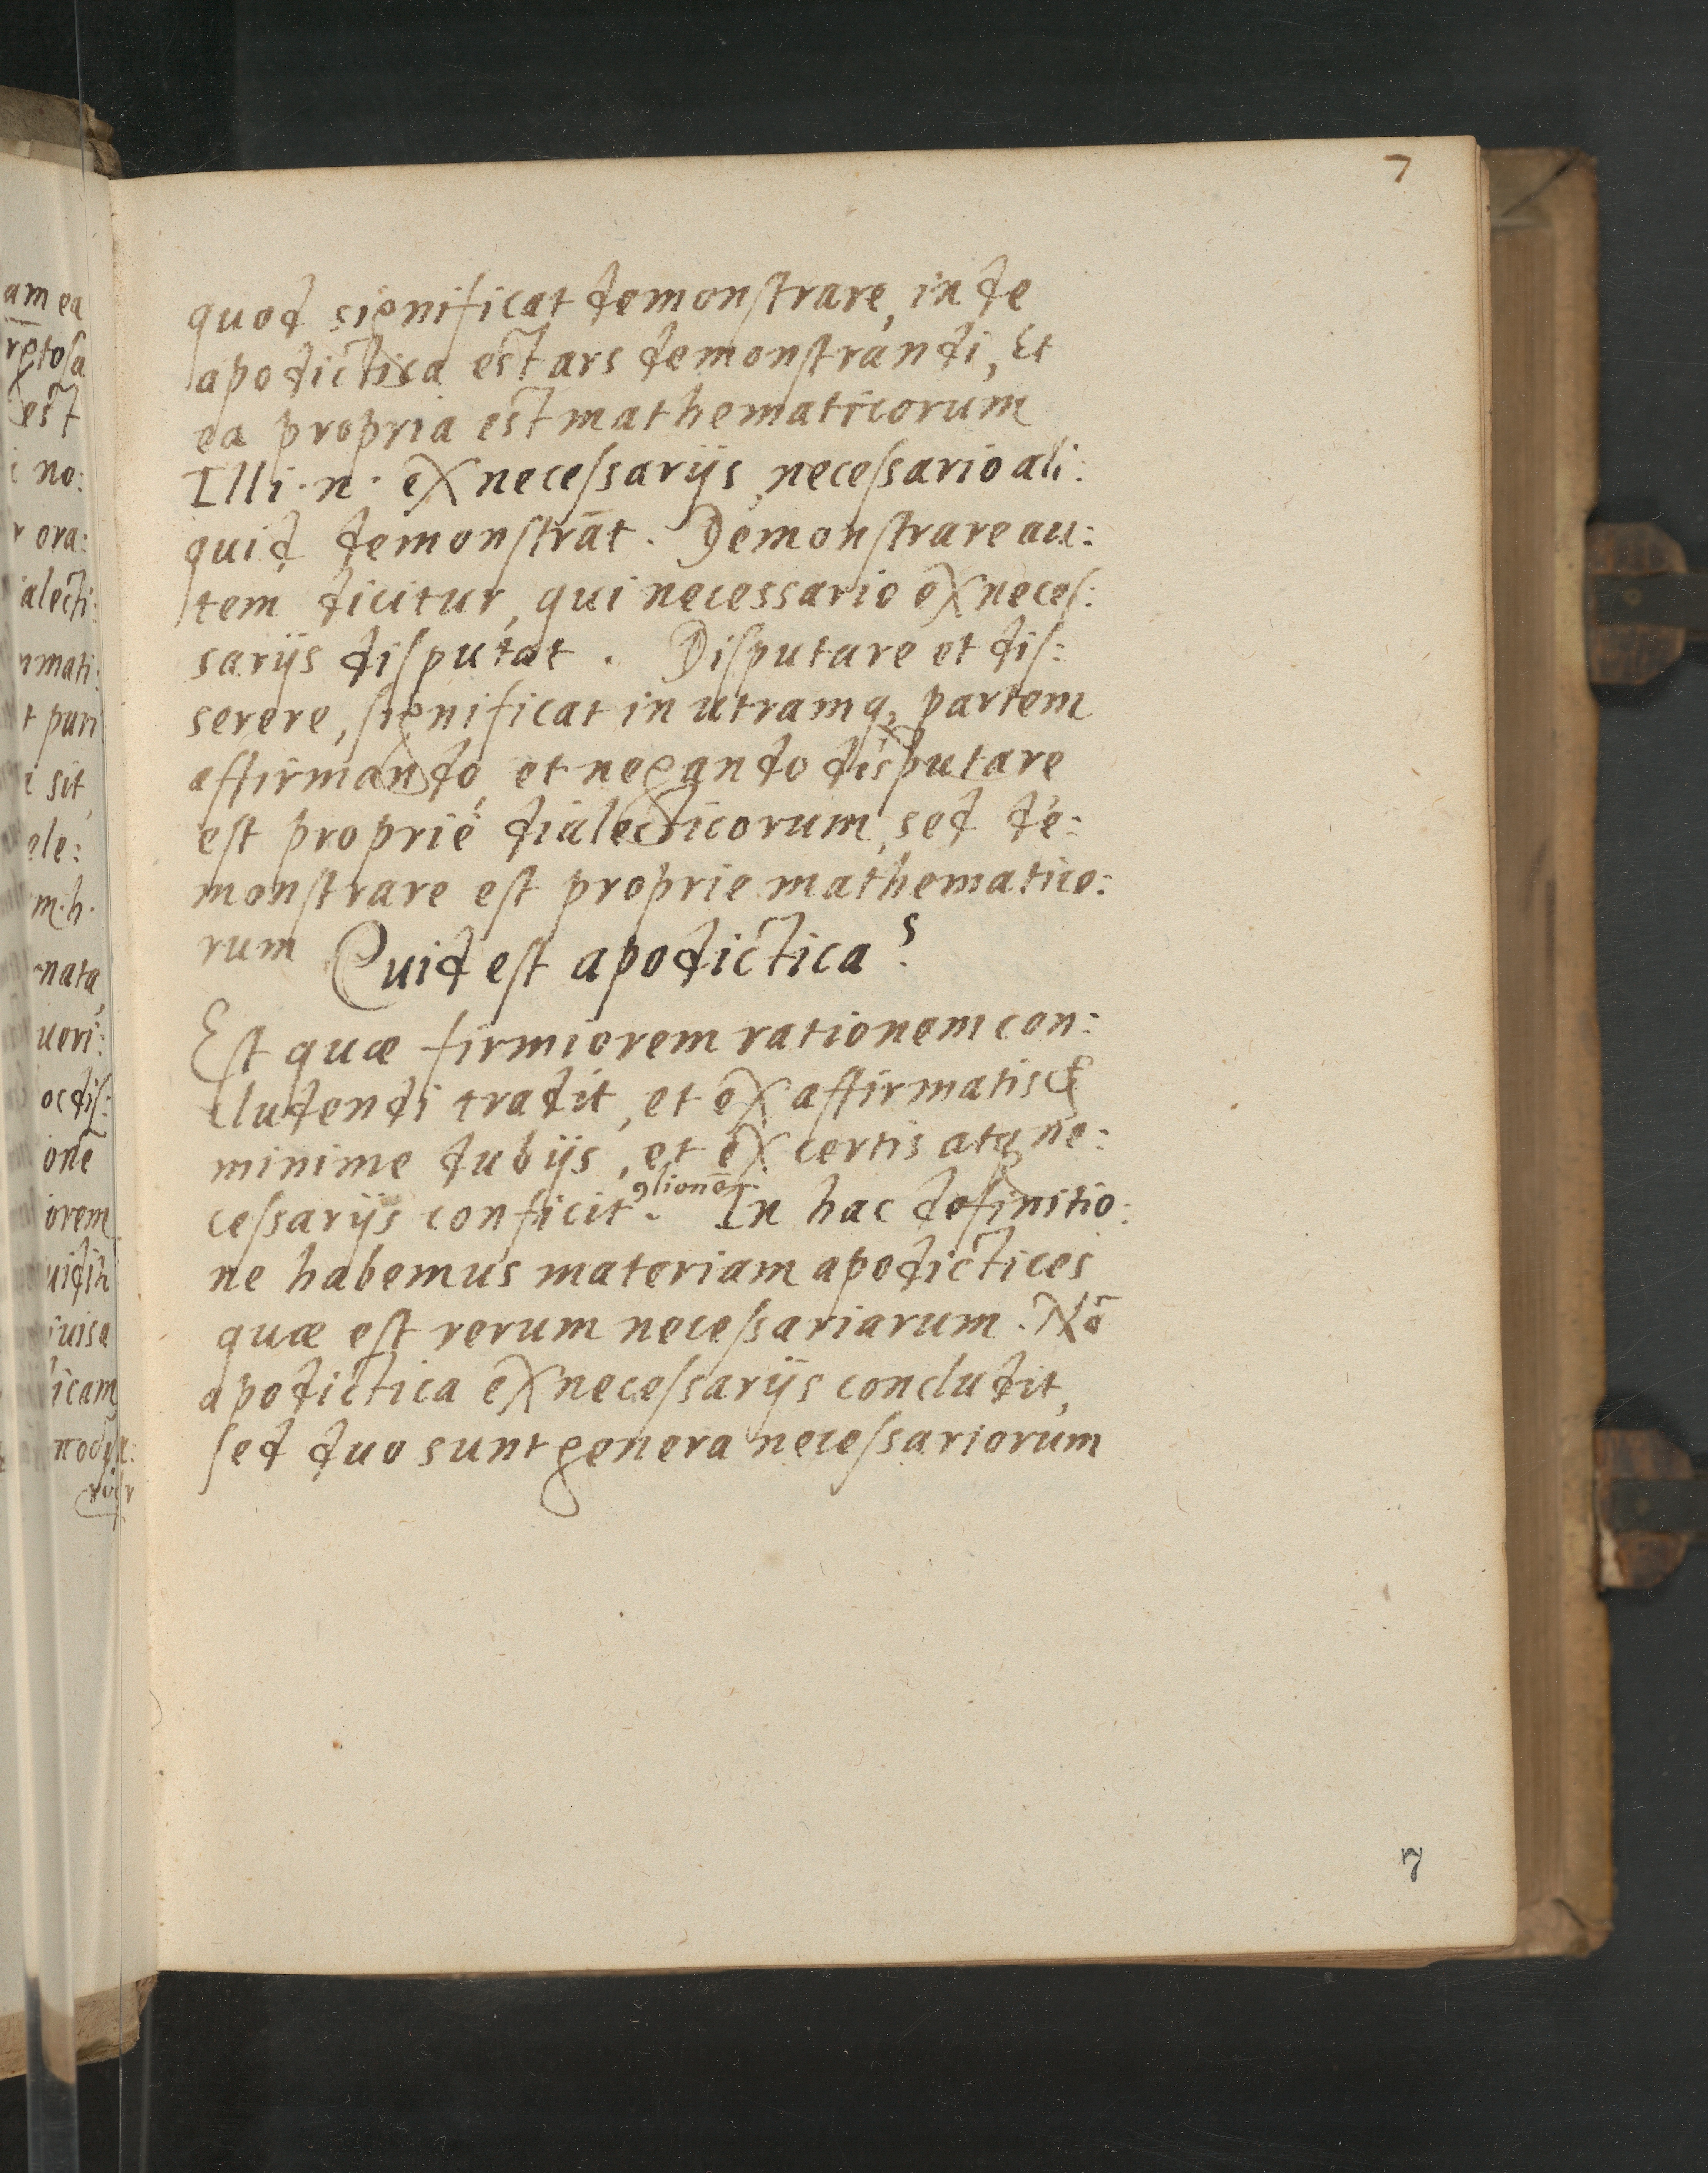 7
quod significat demonstrare, inde
apodictica est ars demonstrandi, Et
ea propria est mathematicorum
Illi ·n· ex necessarijs, necessario ali:
quid demonstrāt. Demonstrare au:
tem dicitur, qui necessario ex neces:
sarijs disputat. Disputare et dis:
serere, significat in utramq, partem
affirmando, et negando disputare
est propriè dialecticorum, sed de:
monstrare est proprie mathematico:
rum Quid est apodictica?
Est quæ firmiorem rationem con:
cludendi tradit, et ex affirmatis &
minime dubijs, et ex certis atq ne:
ꝯlionē.
cessarijs conficit. In hac definitio:
ne habemus materiam apodictices
quæ est rerum necessariarum. Nā
apodictica ex necessarijs concludit,
sed duo sunt genera necessariorum
7
am ea
est
i no:
r ora:
ialecti:
mmati:
t puri
i sit,
ele:
m·h·
nata,
ueri:
oc dis:
onē
iorem
uisa
icam